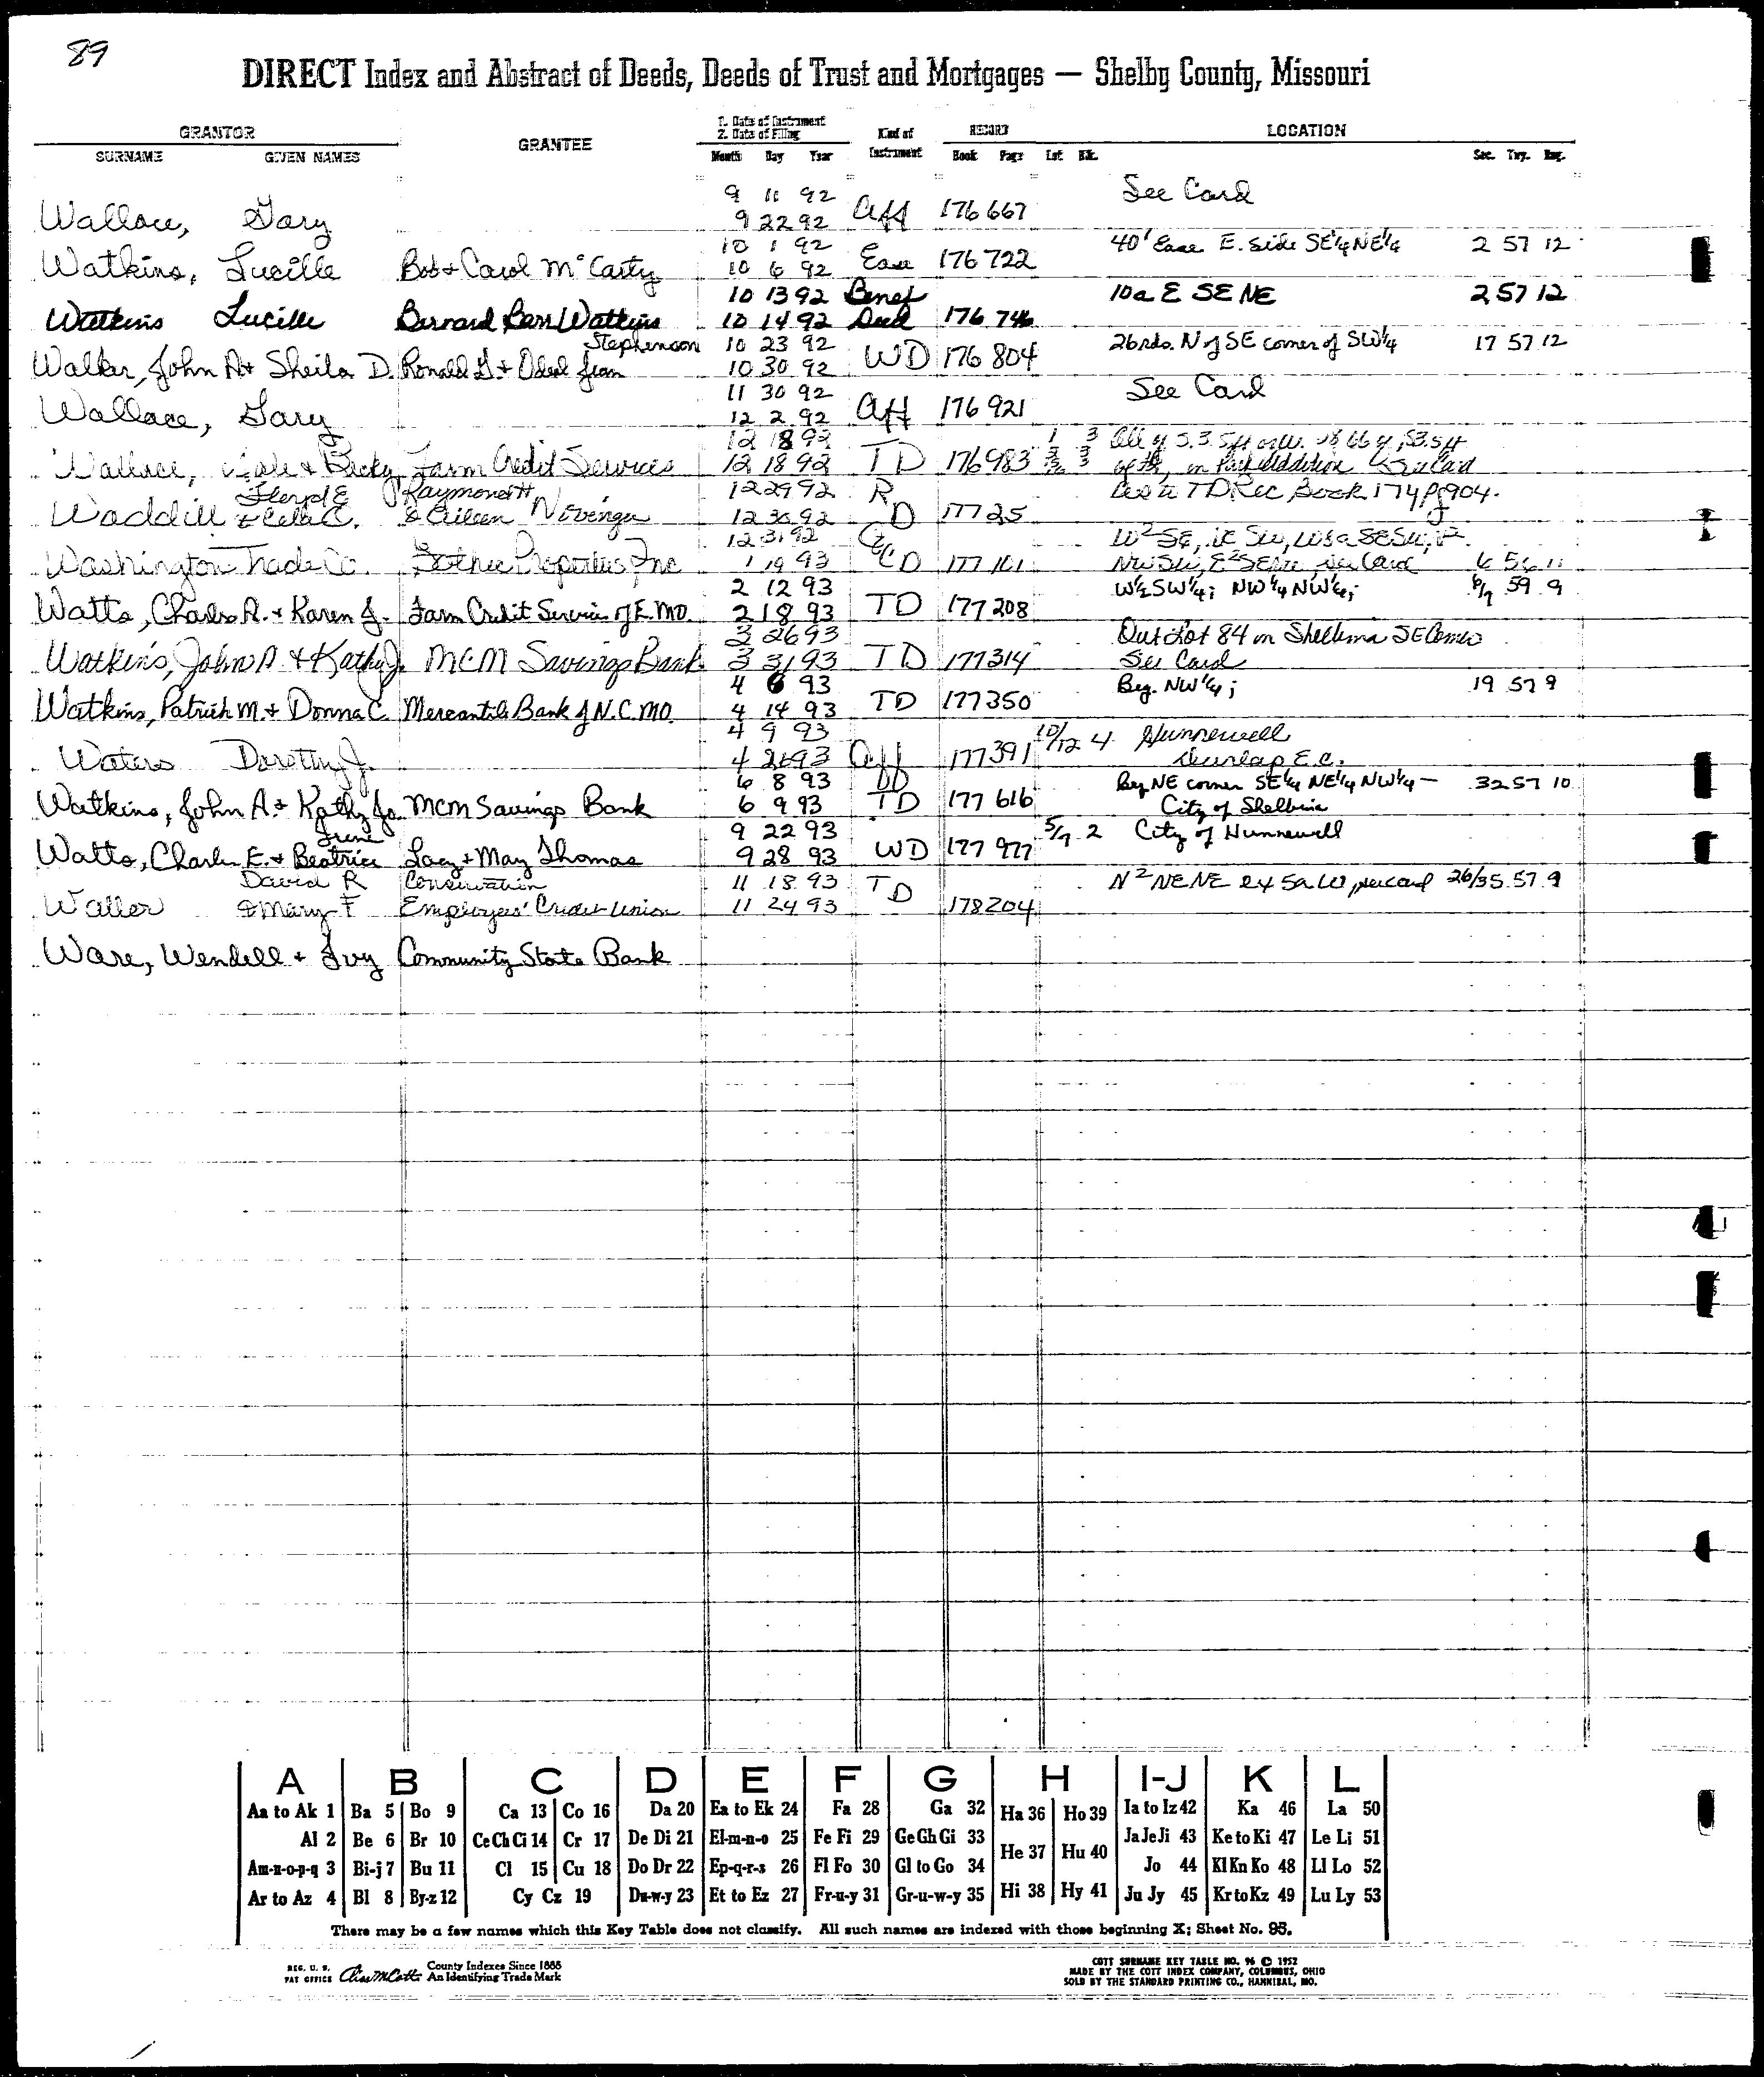 89
DIRECT Index and Abstract of Deeds, Deeds of Trust and Mortgages — Shelby County, Missouri
GRANTOR GRANTEE 1. Date of Instrument 2. Date of Filing Kind of Instrument RECORD LOCATION
SURNAME GIVEN NAMES Month Day Year Book Page Lot Blk. Sec. Twp. Rng.
9 11 92 See Card
Wallace, Gary 9 22 92 Aff 176 667
10 1 92 40' Ease E. side SE¼NE¼ 2 57 12
Watkins, Lucille Bob + Carol McCarty 10 6 92 Ease 176 722
10 13 92 Benef 10a E SE NE 2 57 12
Watkins Lucille Barnard Barr Watkins 10 14 92 Deed 176 746
Stephenson 10 23 92 26 rds. N of SE corner of SW¼ 17 57 12
Walker, John A + Sheila D. Ronald G. + Odeal Jean 10 30 92 WD 176 804
11 30 92 See Card
Wallace, Gary 12 2 92 Aff 176 921
12 18 92 1 3 All of
Wallace, & Becky Farm Credit Services 12 18 92 TD 176 983 3 in Park Addition See Card
Floyd E Raymond H 12 29 92 R TD Rec Book 174 Pg 904.
Waddill & C. & Eileen Novinger 12 30 92 D 177 25
12 31 92 W² SE,
Washington Trade Co. Properties, Inc 1 19 93 CD 177 101 NW SW, E² See Card 6 56 11
2 12 93 W½SW¼; NW¼NW¼; 6/7 59 9
Watts, Charles A. + Karen J. Farm Credit Services of E. MO. 2 18 93 TD 177 208
3 26 93 Out Lot 84 in Shelbina SE Corner
Watkins, John A & Kathy J. MCM Savings Bank 3 31 93 TD 177 314 See Card
4 6 93 Beg. NW¼; 19 57 9
Watkins, Patrick M. + Donna C. Mercantile Bank of N.C. MO. 4 14 93 TD 177 350
4 9 93 10/12 4 Hunnewell
Waters Dorothy J. 4 21 93 Aff 177 391 Dunlap E.C.
6 8 93 Beg NE corner SE¼ NE¼ NW¼ — 32 57 10
Watkins, John A. + Kathy Jo MCM Savings Bank 6 9 93 TD 177 616 City of Shelbina
Irene 9 22 93 5/7 2 City of Hunnewell
Watts, Charles E. + Beatrice Lacy + May Thomas 9 28 93 WD 177 977
David R Conservation 11 18 93 TD N² NE NE ex 5a W, see card 26/35 57 9
Waller & Mary F Employees' Credit Union 11 24 93 178 204
Ware, Wendell + Ivy Community State Bank
A B C D E F G H I-J K L
Aa to Ak 1 Ba 5 Bo 9 Ca 13 Co 16 Da 20 Ea to Ek 24 Fa 28 Ga 32 Ha 36 Ho 39 Ia to Iz 42 Ka 46 La 50
Al 2 Be 6 Br 10 Ce Ch Ci 14 Cr 17 De Di 21 El-m-n-o 25 Fe Fi 29 Ge Gh Gi 33 He 37 Hu 40 Ja Je Ji 43 Ke to Ki 47 Le Li 51
Am-n-o-p-q 3 Bi-j 7 Bu 11 Cl 15 Cu 18 Do Dr 22 Ep-q-r-s 26 Fl Fo 30 Gl to Go 34 Jo 44 Kl Kn Ko 48 Ll Lo 52
Ar to Az 4 Bl 8 By-z 12 Cy Cz 19 Du-w-y 23 Et to Ez 27 Fr-u-y 31 Gr-u-w-y 35 Hi 38 Hy 41 Ju Jy 45 Kr to Kz 49 Lu Ly 53
There may be a few names which this Key Table does not classify. All such names are indexed with those beginning X; Sheet No. 95.
REG. U. S. PAT OFFICE County Indexes Since 1888 An Identifying Trade Mark
COTT SURNAME KEY TABLE NO. 96 © 1952
MADE BY THE COTT INDEX COMPANY, COLUMBUS, OHIO
SOLD BY THE STANDARD PRINTING CO., HANNIBAL, MO.